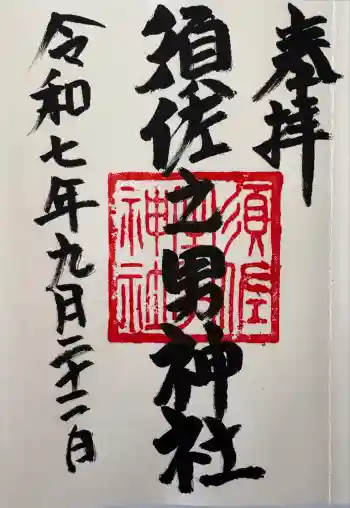 奉拝
須佐之男神社
令和七年九月二十二日